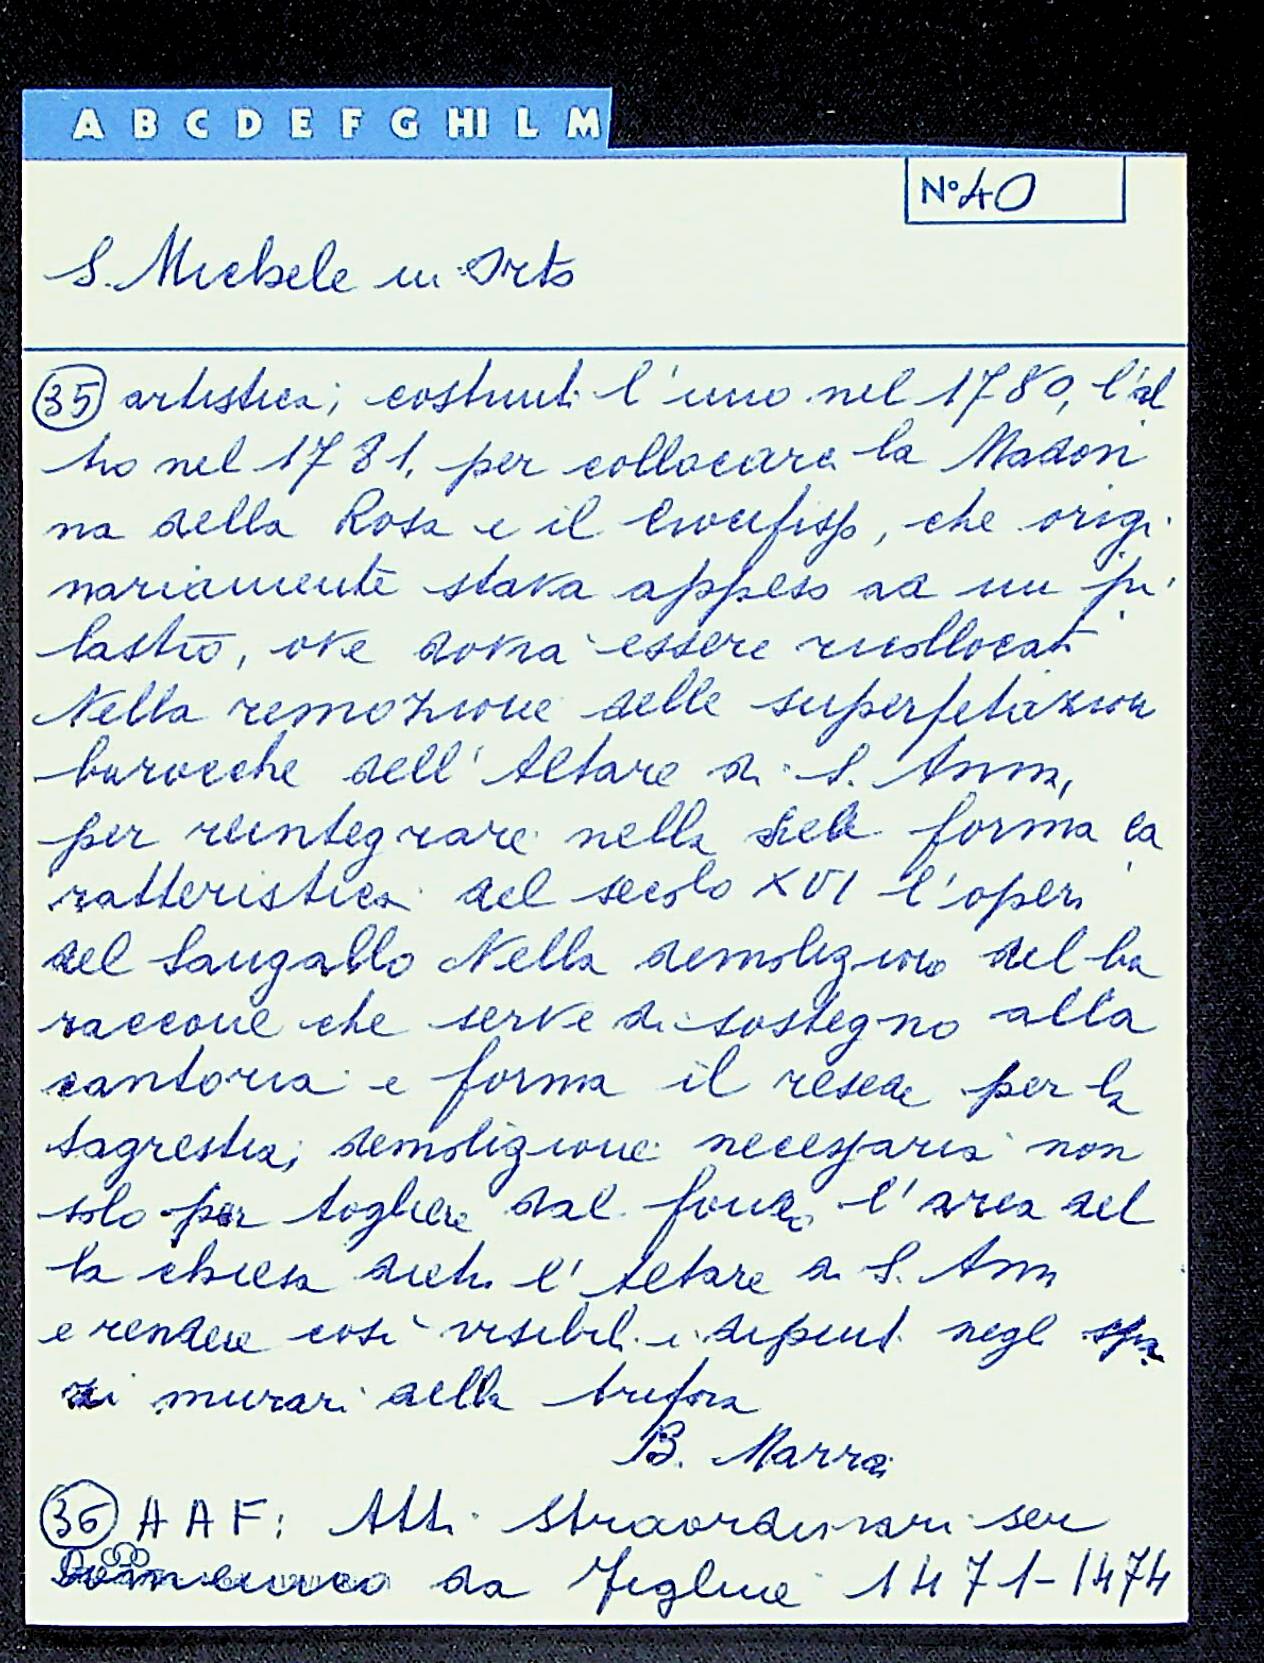 A B C D E F G HI L M
N° 40
S. Michele in Orto
35 artistica; costruiti l'uno nel 1780, l'al
tro nel 1781, per collocare la Madon
na della Rosa e il Crocifisso, che origi
nariamente stava appeso ad un pi
lastro, ove dovrà essere ricollocato
Nella remozione delle superfetazioni
barocche dell'Altare di S. Anna,
per reintegrare nella sua forma ca
ratteristica del secolo XVI l'opera
del Sangallo Nella demolizione del ba
raccone che serve di sostegno alla
cantoria e forma il resede per la
sagrestia; demolizione necessaria non
solo per togliere dal fondo l'area del
la chiesa dietro l'Altare di S. Anna
e rendere così visibili i dipinti negli spa
zi murari della trifora
B. Marrai
36 A A F: Atti straordinari ser
Domenico da Figline 1471-1474